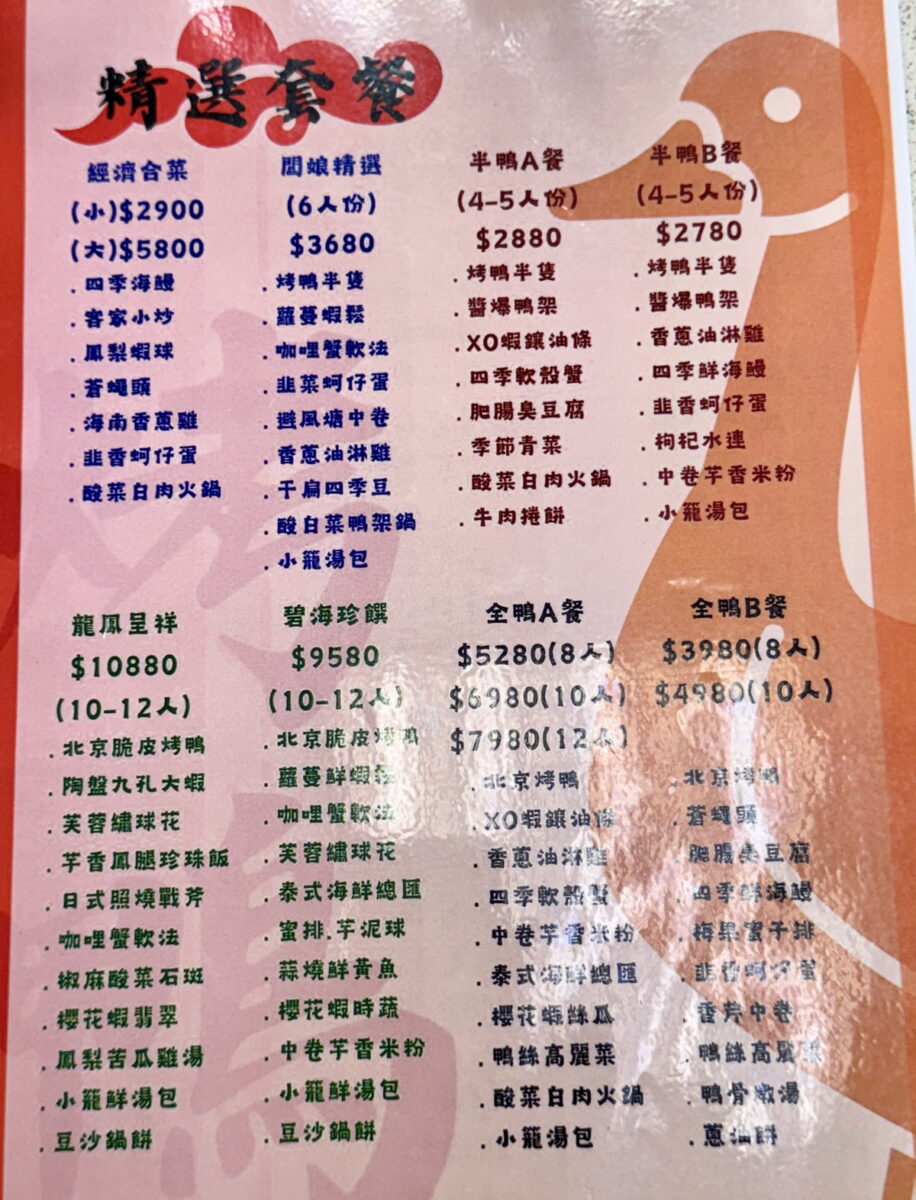 精選套餐
經濟合菜
(小)$2900
(大)$5800
．四季海鰻
．客家小炒
．鳳梨蝦球
．蒼蠅頭
．海南香蔥雞
．韭香蚵仔蛋
．酸菜白肉火鍋
闆娘精選
(6人份)
$3680
．烤鴨半隻
．蘿蔓蝦鬆
．咖哩蟹軟法
．韭菜蚵仔蛋
．避風塘中卷
．香蔥油淋雞
．干扁四季豆
．酸白菜鴨架鍋
．小籠湯包
半鴨A餐
(4-5人份)
$2880
．烤鴨半隻
．醬爆鴨架
．XO蝦鑲油條
．四季軟殼蟹
．肥腸臭豆腐
．季節青菜
．酸菜白肉火鍋
．牛肉捲餅
半鴨B餐
(4-5人份)
$2780
．烤鴨半隻
．醬爆鴨架
．香蔥油淋雞
．四季鮮海鰻
．韭香蚵仔蛋
．枸杞水連
．中卷芋香米粉
．小籠湯包
龍鳳呈祥
$10880
(10-12人)
．北京脆皮烤鴨
．陶盤九孔大蝦
．芙蓉繡球花
．芋香鳳腿珍珠飯
．日式照燒戰斧
．咖哩蟹軟法
．椒麻酸菜石斑
．櫻花蝦翡翠
．鳳梨苦瓜雞湯
．小籠鮮湯包
．豆沙鍋餅
碧海珍饌
$9580
(10-12人)
．北京脆皮烤鴨
．蘿蔓鮮蝦鬆
．咖哩蟹軟法
．芙蓉繡球花
．泰式海鮮總匯
．蜜排.芋泥球
．蒜燒鮮黃魚
．櫻花蝦時蔬
．中卷芋香米粉
．小籠鮮湯包
．豆沙鍋餅
全鴨A餐
$5280(8人)
$6980(10人)
$7980(12人)
．北京烤鴨
．XO蝦鑲油條
．香蔥油淋雞
．四季軟殼蟹
．中卷芋香米粉
．泰式海鮮總匯
．櫻花蝦絲瓜
．鴨絲高麗菜
．酸菜白肉火鍋
．小籠湯包
全鴨B餐
$3980(8人)
$4980(10人)
．北京烤鴨
．蒼蠅頭
肥腸臭豆腐
．四季鮮海鰻
．梅果蜜子排
．韭香蚵仔蛋
．香芹中卷
．鴨絲高麗菜
．鴨骨燉湯
．蔥油餅